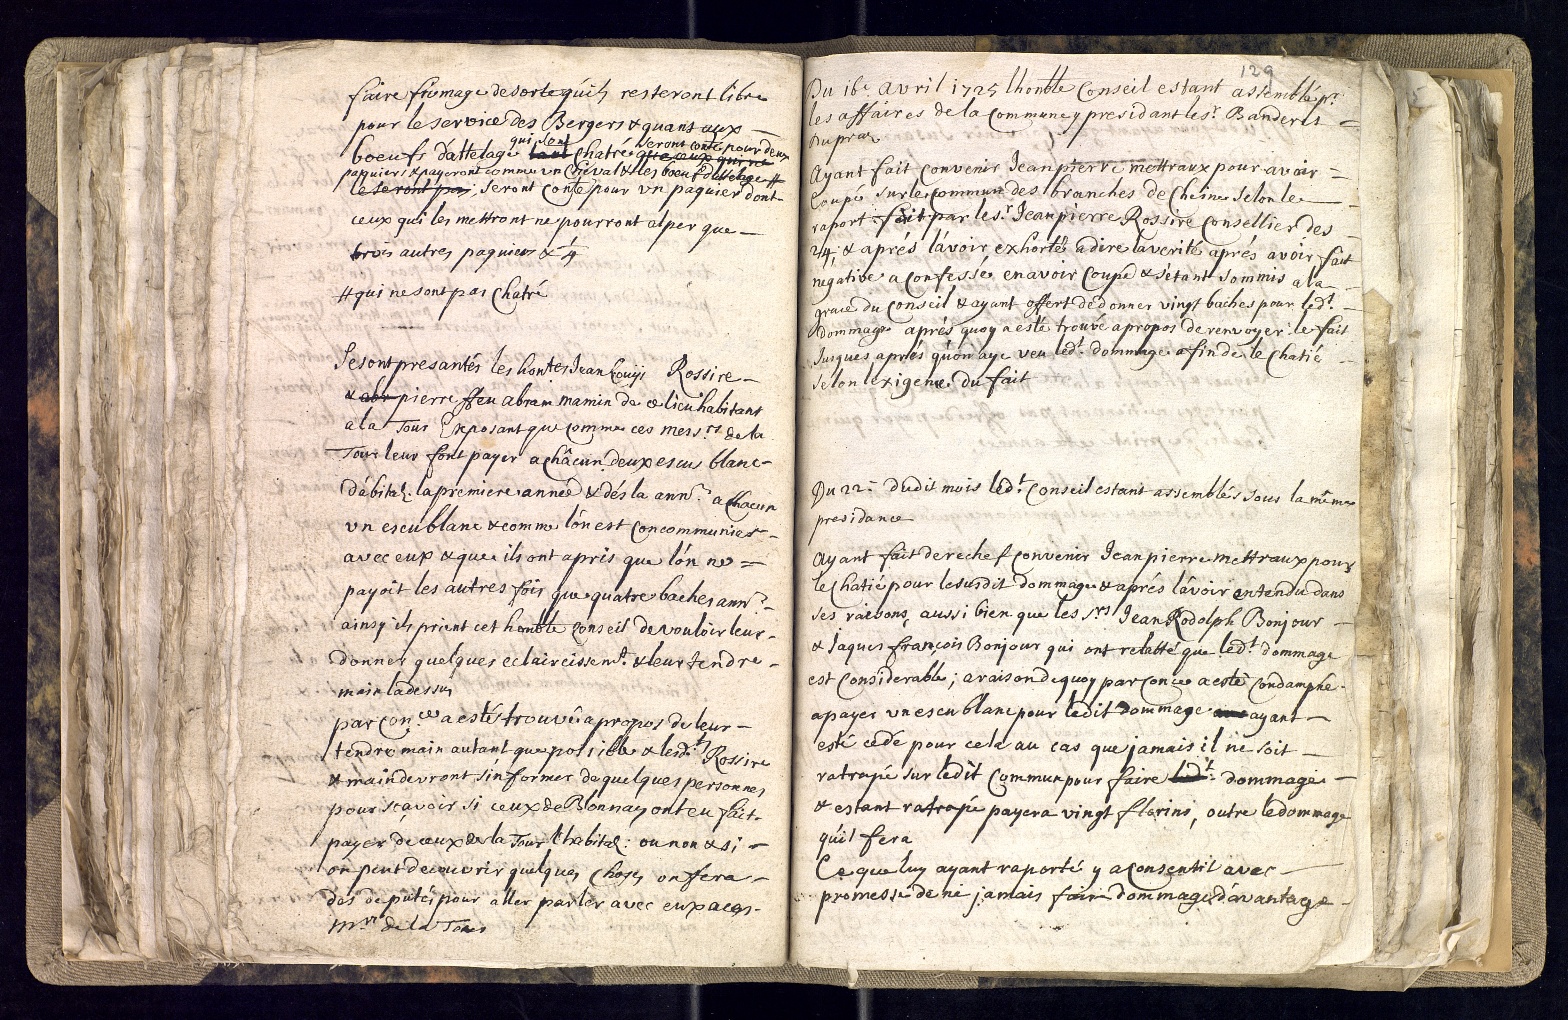 faire fromage desorte qu'ils resteront libre
pour le service des Bergers & quant aux
boeufs d'attelage qui sont chatré seront conté pour deux
paquiers & payeront comme un Cheval & les boeufs d'attelage #
le seront pas, seront conté pour un paquier dont
ceux qui les mettront ne pourront alper que
trois autres paquiers &
# qui ne sont pas Chatré
Se sont presantés les honêtes Jean Louijs Rossire
& abr pierre ffeu abram mamin de ce lieu habitans
a la Tour Exposant que comme ces mess.rs de la
Tour leur font payer a châcun deux escus blanc
d'abita: la premiere année & dés la ann.e a chacun
un escu blanc & comme l'on est concommunier
avec eux & que ils ont apris que l'on ne
payoit les autres fois que quatre baches ann.
ainsy ils prient cet honble Conseil de vouloir leur
donner quelques eclaircissem.t & leur tendre
main la dessus
par con.ce a estés trouvé a propos de leur
tendre main autant que possible & lesd.t Rossire
& main devront s'informer de quelques personnes
pour sçavoir si ceux de Blonnay ont eu fait
payer de ceux de la Tour l'habita: ou non & si
on peut decouvrir quelques choses on fera
des deputés pour aller parler avec eux a ces
M.rs de la Tour
129
Du 16e Avril 1725 lhonble Conseil estant assemblé p.r
les affaires de la Commune y presidant le s.r Banderet
Dupraz
Ayant fait convenir Jean pierre mettraux pour avoir
Coupé sur le commun des branches de Chesne selon le
raport fait par le s.r Jean pierre Rossire Consellier des
24, & aprés l'avoir exhorté a dire la verité aprés avoir fait
negative a Confessé en avoir Coupé & s'étant sommis a la
grace du Conseil & ayant offert de donner vingt baches pour led.t
dommage aprés quoy a esté trouvé a propos de renvoyer le fait
Jusques aprés qu'on aye veu led.t dommage afin de le Chatié
selon lexigence du fait
Du 22e dudit mois led.t Conseil estant assemblés sous la même
presidance
Ayant fait de rechef convenir Jean pierre mettraux pour
le Chatié pour le susdit dommage & aprés l'avoir entendu dans
ses raisons, aussi bien que les s.rs Jean Rodolph Bonjour
& Jaques françois Bonjour qui ont relatté que led.t dommage
est Considerable; a raison de quoy par con.ce a esté Condamphé
a payer un escu blanc pour ledit dommage ayant
esté cedé pour cela au cas que jamais il ne soit
ratrapé sur ledit Commun pour faire led.t dommage
& estant ratrapé payera vingt florins, outre le dommage
qu'il fera
Ce que luy ayant raporté y a consentit avec
promesse de ne jamais faire dommage d'avantage